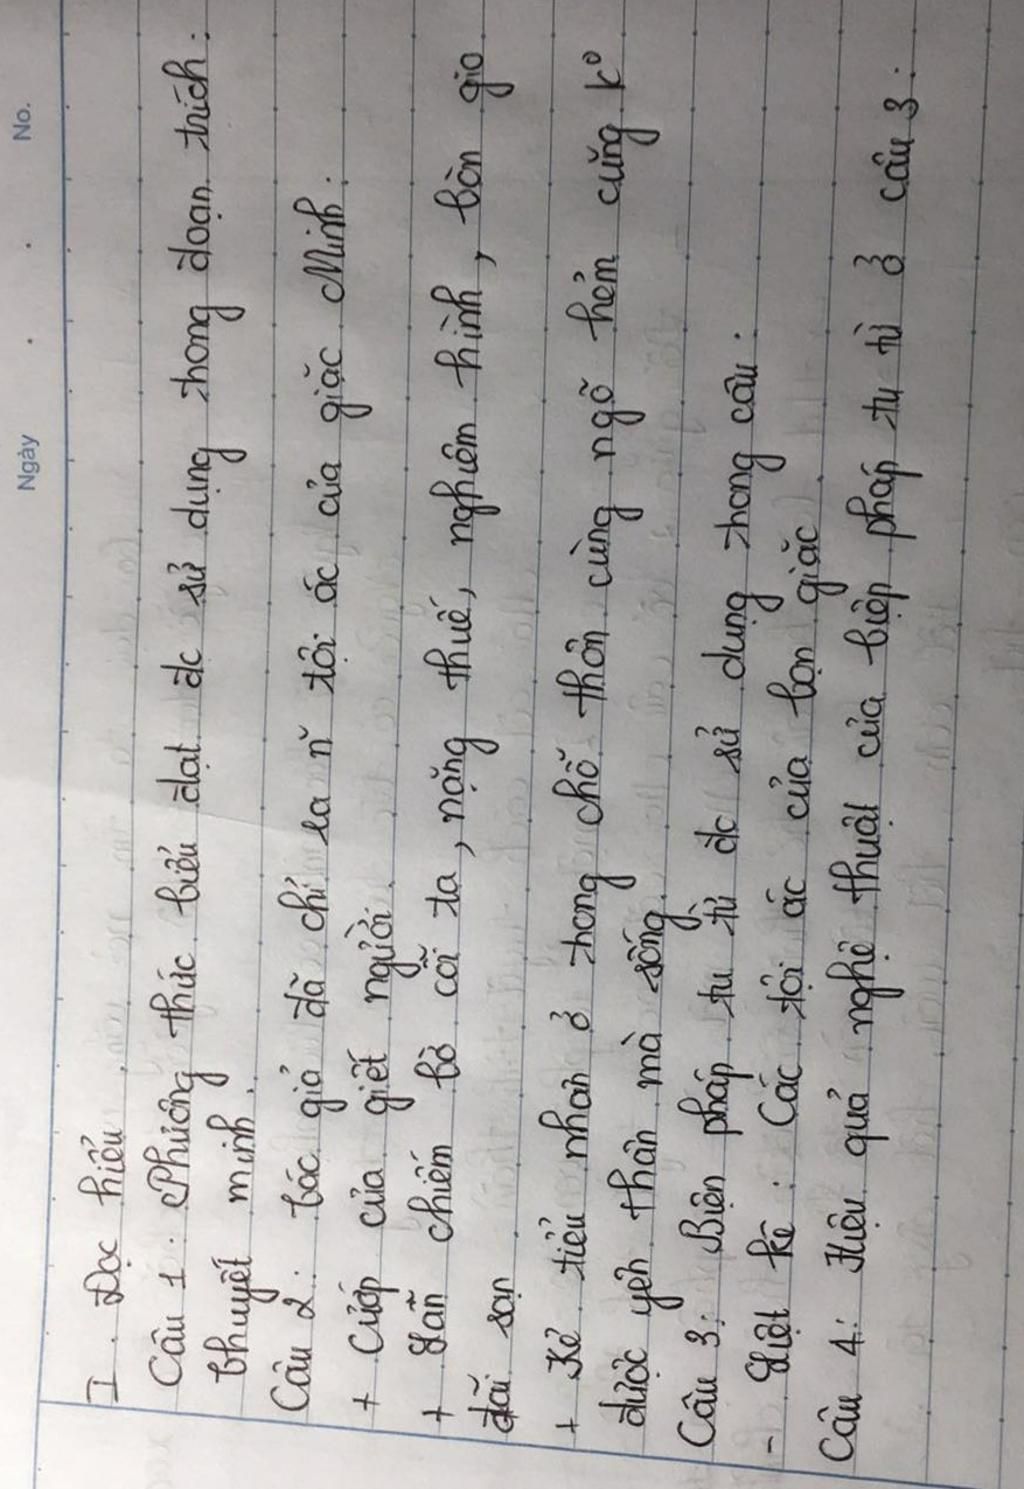 Ngày . . No.
I. Đọc hiểu
Câu 1: Phương thức biểu đạt đc sử dụng trong đoạn trích:
thuyết minh.
Câu 2: tác giả đã chỉ ra n~ tội ác của giặc Minh.
+ Cướp của giết người.
+ Lấn chiếm bờ cõi ta, nặng thuế, nghiêm hình, bòn gio
đãi sạn
+ Kẻ tiểu nhân ở trong chỗ thôn cùng ngõ hẻm cũng k°
được yên thân mà sống.
Câu 3: Biện pháp tu từ đc sử dụng trong câu:
- Liệt kê: Các tội ác của bọn giặc
Câu 4: Hiệu quả nghệ thuật của biện pháp tu từ ở câu 3: